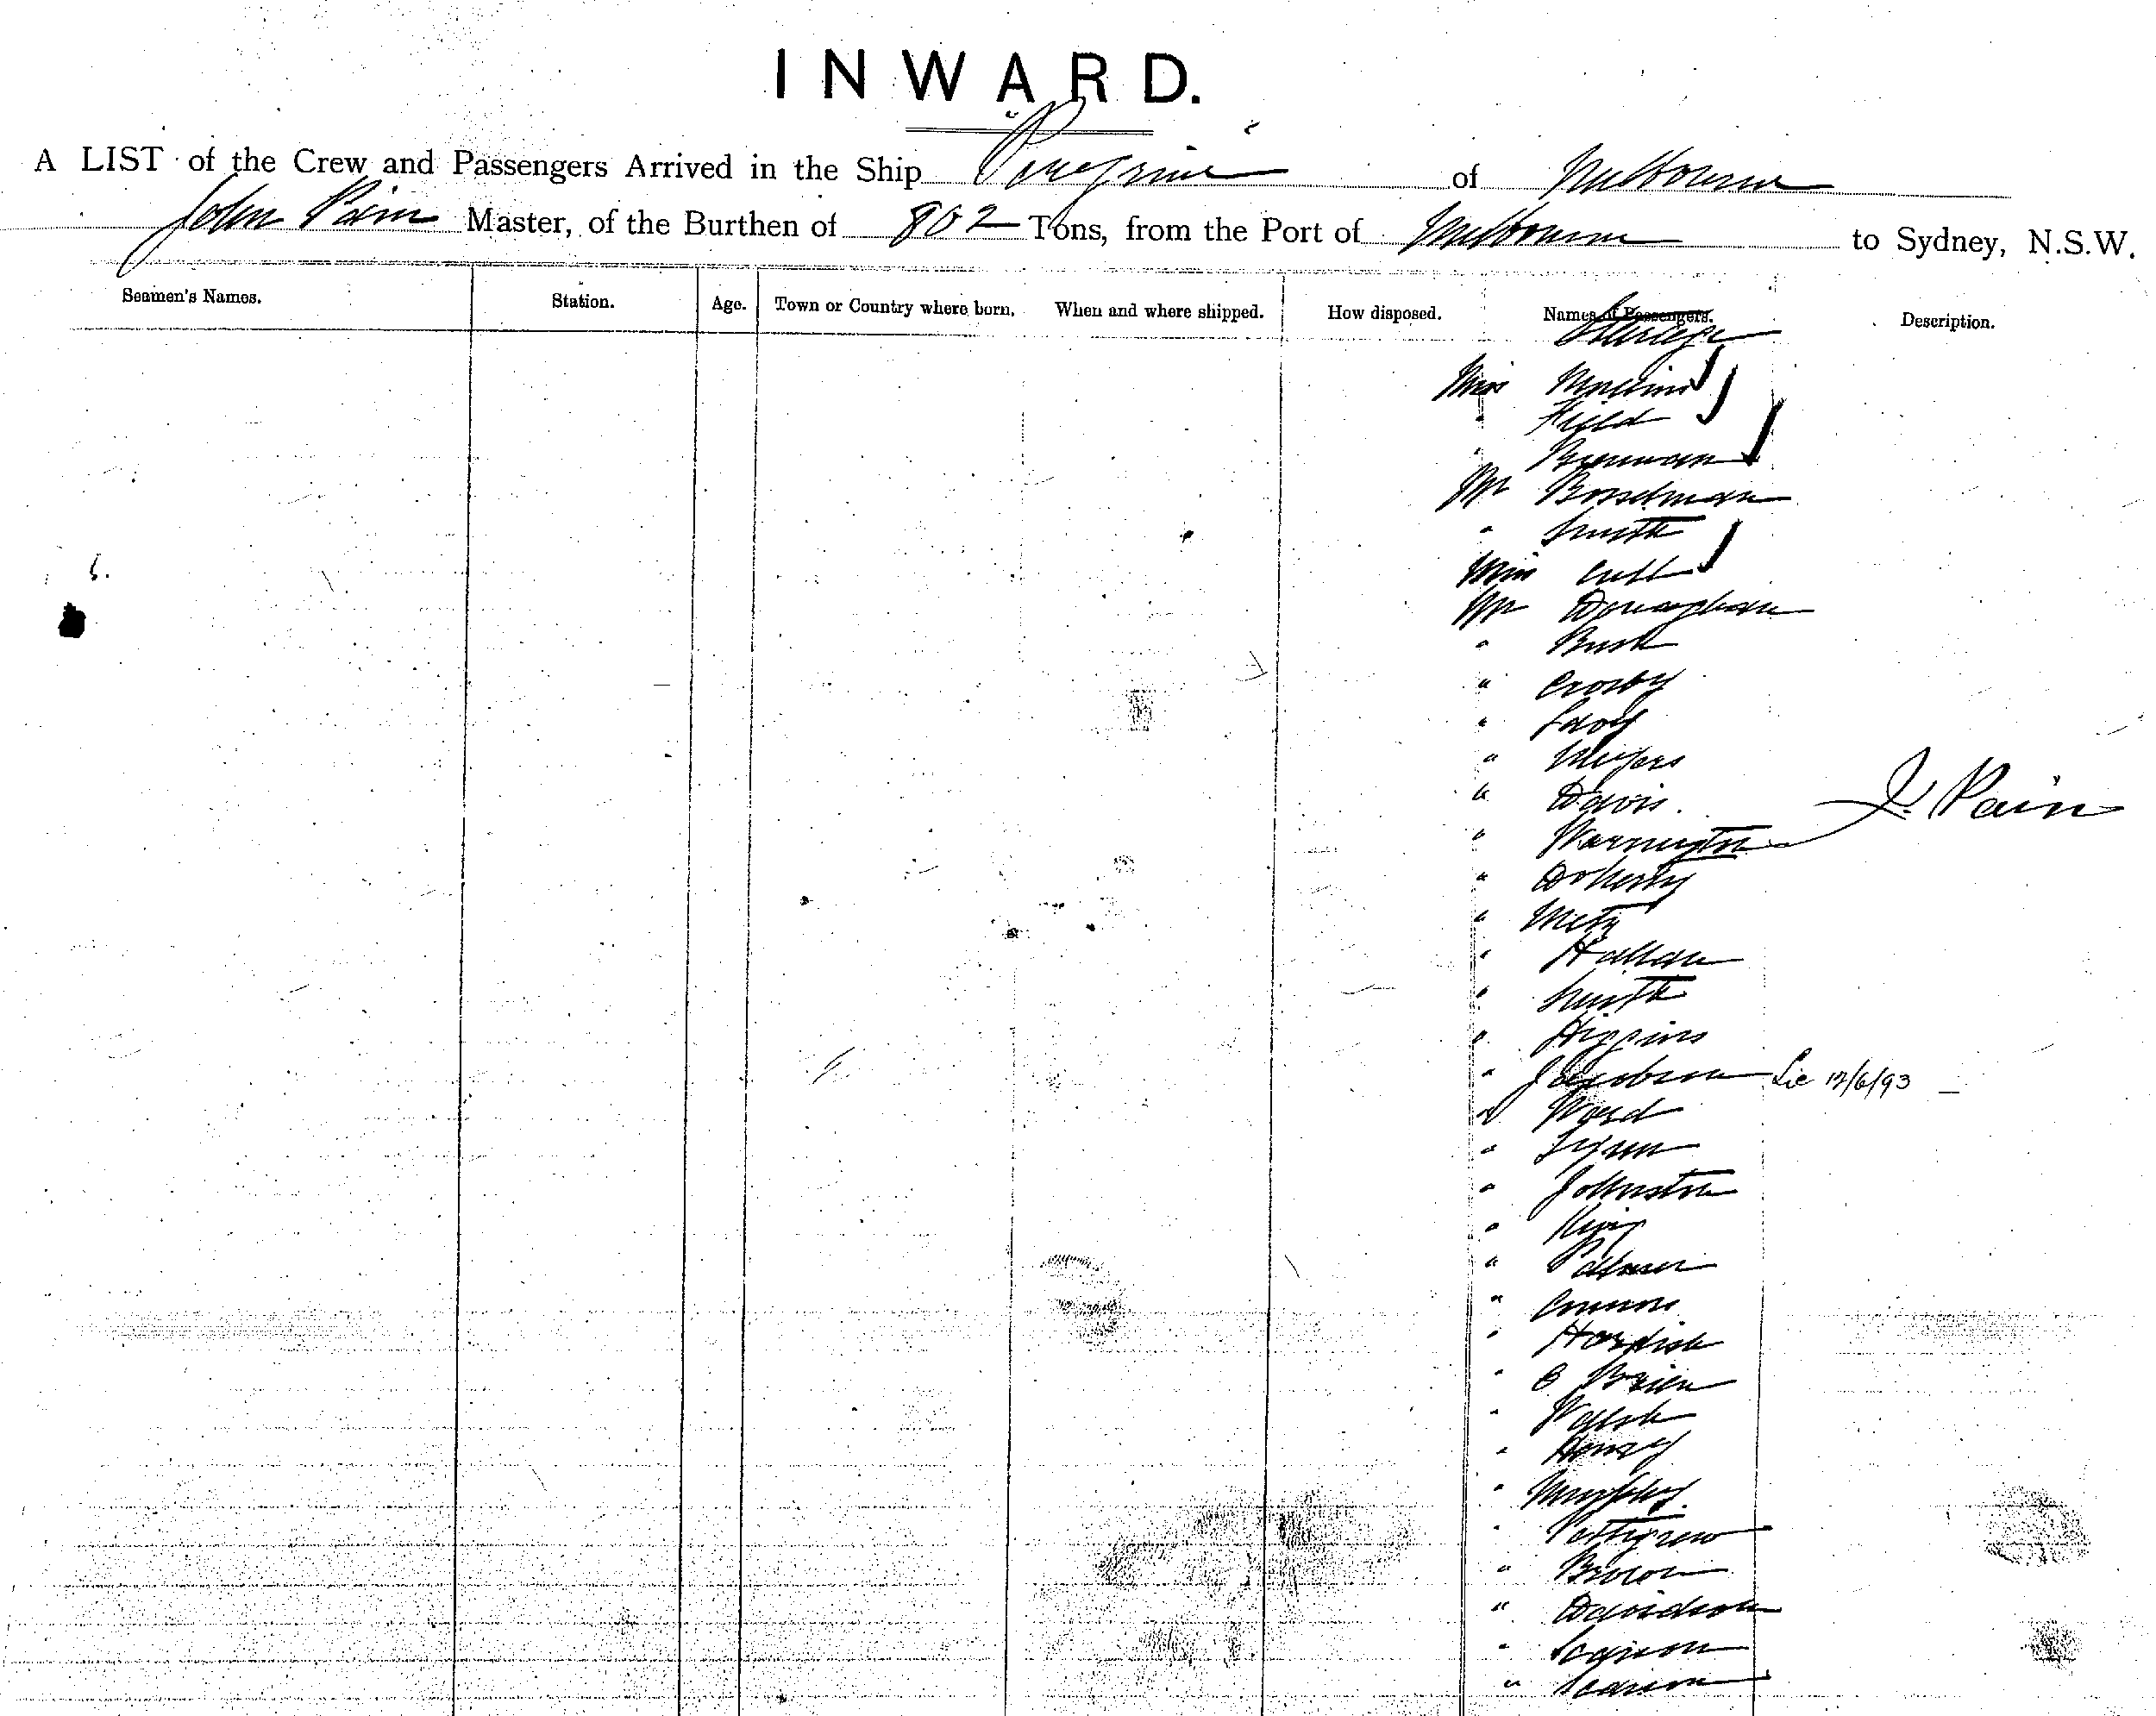 INWARD.
A LIST of the Crew and Passengers Arrived in the Ship Peregrine of Melbourne
John Pain Master, of the Burthen of 802 Tons, from the Port of Melbourne to Sydney, N.S.W.
Seamen's Names. Station. Age. Town or Country where born. When and where shipped. How disposed. Names of Passengers. Description.
Steerage
Miss
" Field
" Brennan
Mr Bosselman
" Smith
Miss
Mr Donaghan
" Bush
" Crosby
"
" Meyers
" Davis.
" Warrington
J. Pain
" Doherty
" Metz
" Hallam
" Smith
" Higgins
" Jacobson Lic 12/6/93 —
" Ward
"
" Johnston
" King
" Palmer
" Connors
"
" O Brien
" Walsh
" Henry
" Murphy.
" Pettigrew
" Brown
" Davidson
"
"